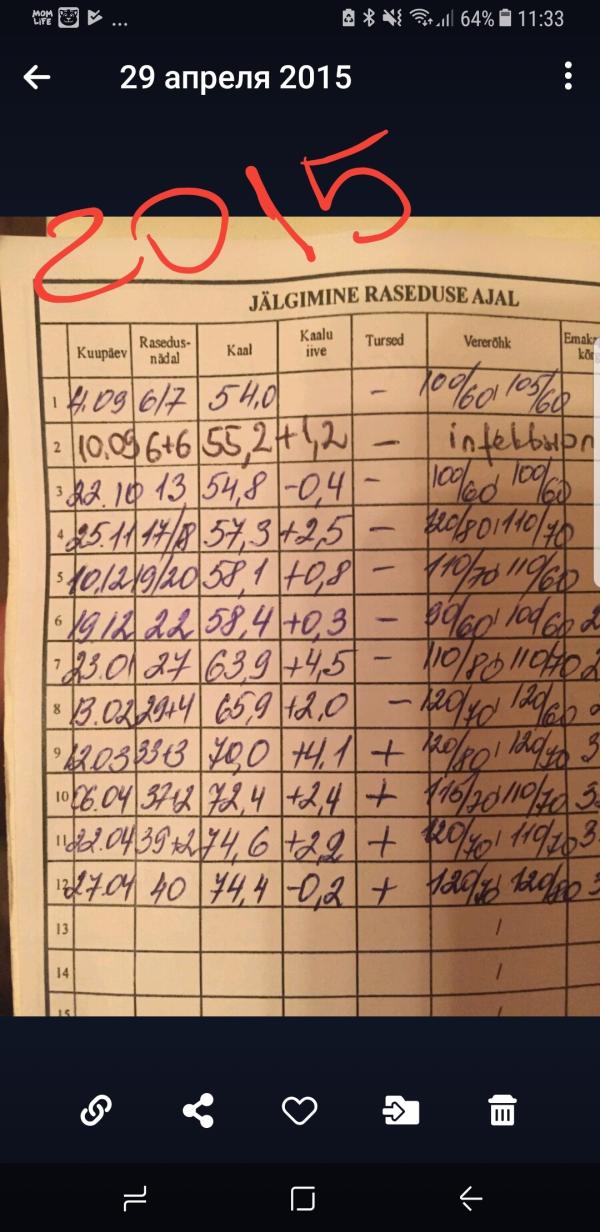 MOM LIFE ... 64% 11:33
29 апреля 2015
2015
JÄLGIMINE RASEDUSE AJAL
Kuupäev Rasedus-nädal Kaal Kaalu iive Tursed Vererõhk
1 4.09 6/7 54,0 – 100/60, 105/60
2 10.09 6+6 55,2 +1,2 –
3 22.10 13 54,8 -0,4 – 100/60, 100/60
4 25.11 17/18 57,3 +2,5 – 120/80, 110/70
5 10.12 19/20 58,1 +0,8 – 110/70, 110/60
6 19.12 22 58,4 +0,3 – 90/60, 100/60 2
7 23.01 27 63,9 +4,5 – 110/80, 110/70 2
8 13.02 29+4 65,9 +2,0 – 120/70, 120/60 2
9 12.03 33+3 70,0 +4,1 + 120/80, 120/70 3
10 06.04 37+2 72,4 +2,4 + 115/70, 110/70 3
11 22.04 39+2 74,6 +2,2 + 120/70, 110/70 3
12 27.04 40 74,4 -0,2 + 120/70, 120/80 3
13 /
14 /
15 /